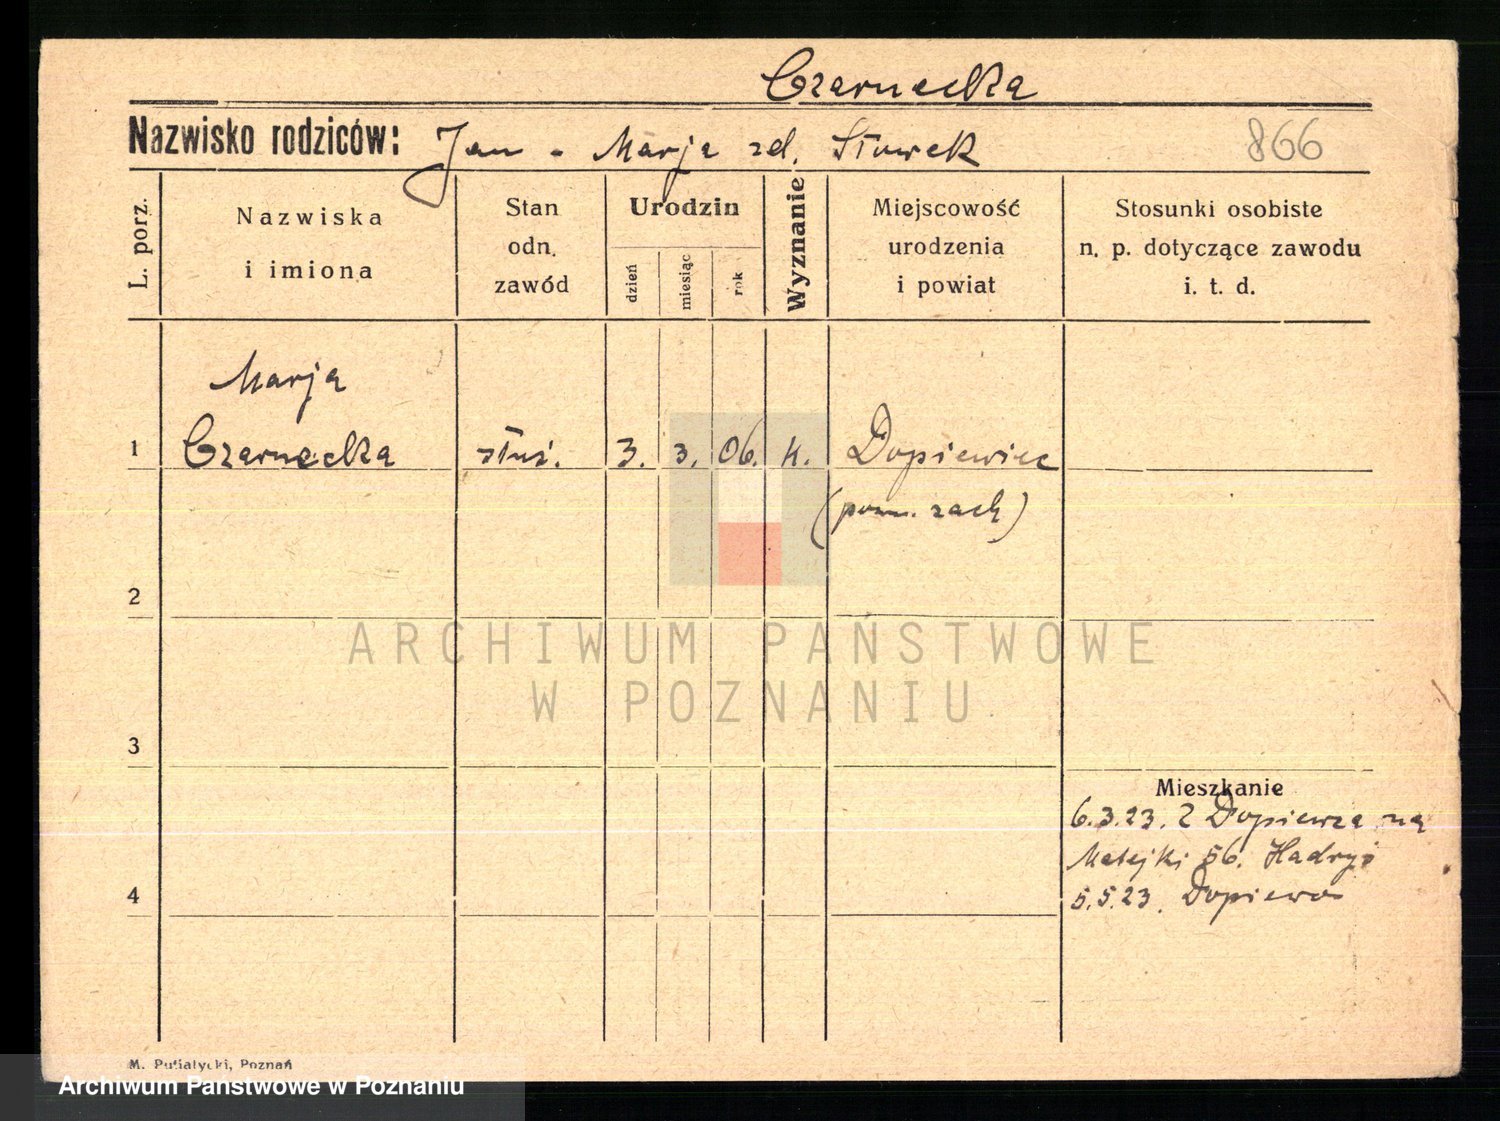 Czarnecka
Nazwisko rodziców: Jan - Marja zd. Słowek
866
L. porz.
Nazwiska
i imiona
Stan
odn.
zawód
Urodzin
dzień
miesiąc
rok
Wyznanie
Miejscowość
urodzenia
i powiat
Stosunki osobiste
n. p. dotyczące zawodu
i. t. d.
Marja
1 Czarnecka służ. 3. 3. 06. k. Dopiewiec
(pozn. zach)
2
ARCHIWUM PAŃSTWOWE
W POZNANIU
3
Mieszkanie
6.3.23. Z Dopiewca na
Matejki 56. Hadryś
4
5.5.23. Dopiewo
M. Putiatycki, Poznań
Archiwum Państwowe w Poznaniu